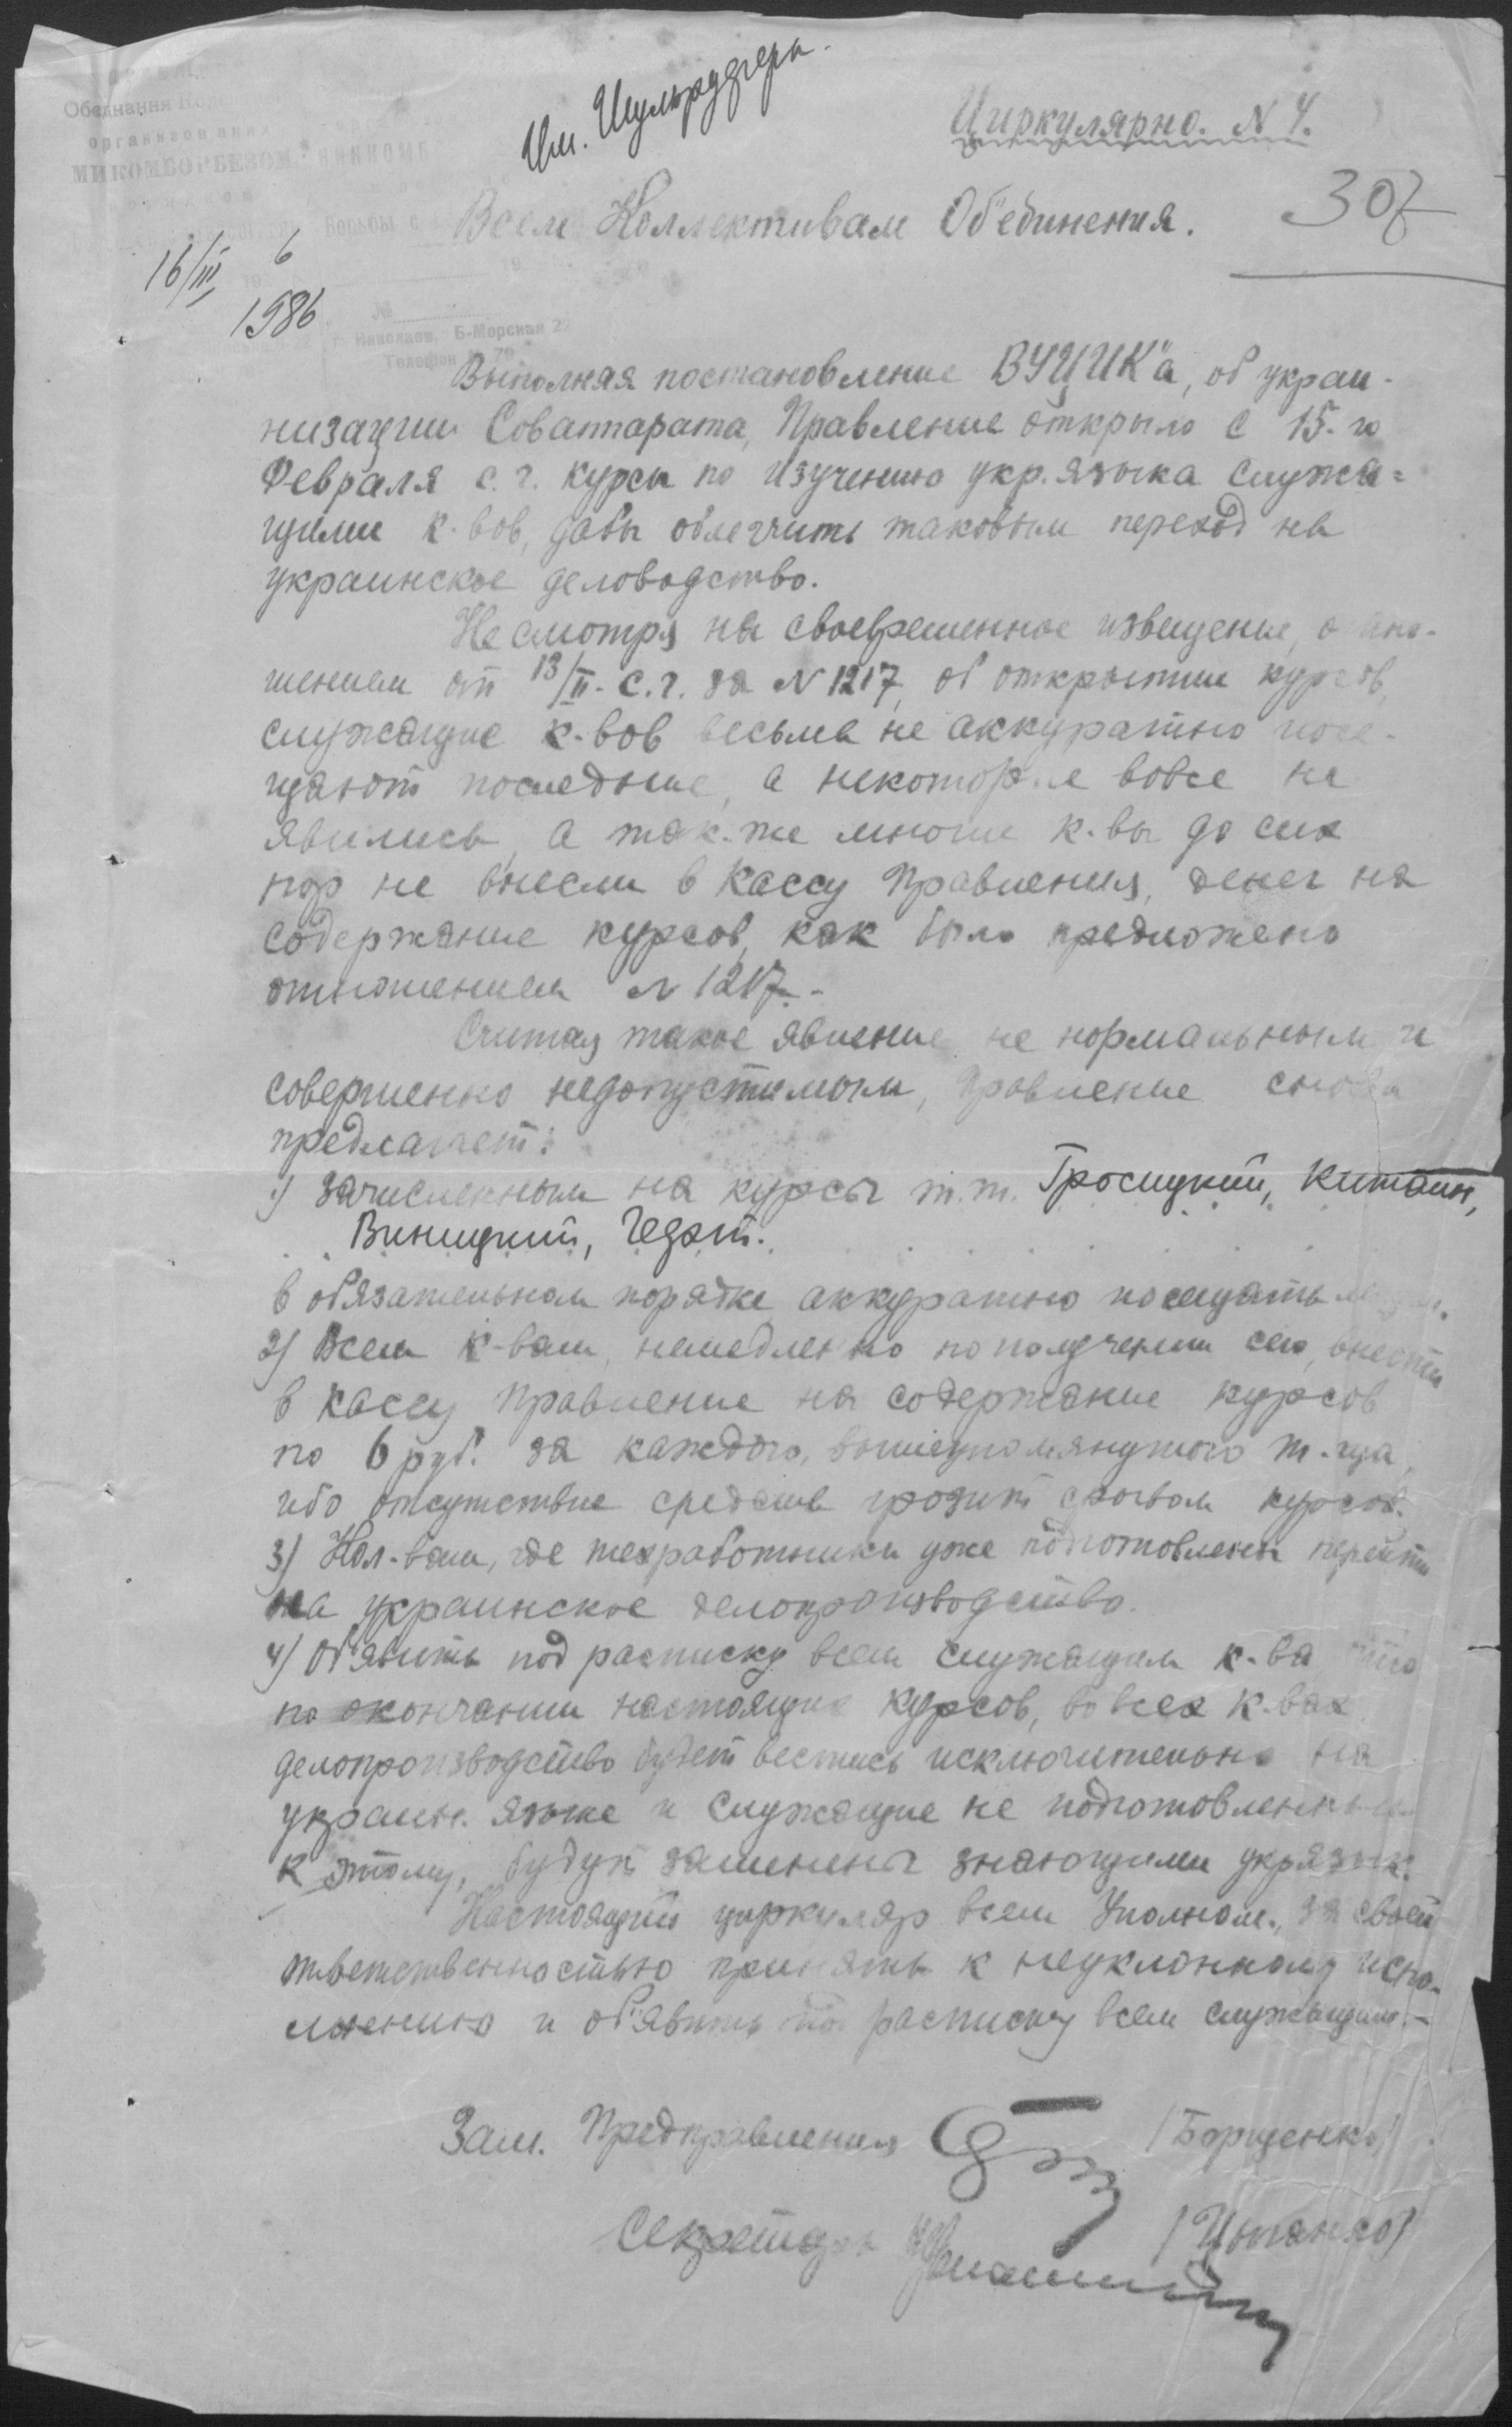 Обєднання
організованих
МИКОМБОРБЕЗОМ
Борьбы с
№
г. Николаев, Б-Морская 2
Телефон
Циркулярно. N 4.
307
Всем Коллективам Об'единения.
16/III 6
1986
Выполняя постановление ВУЦИК'а, об украи-
низации Соваппарата, Правление открыло с 15-го
Февраля с.г. курсы по изучению укр. языка служа=
щими к-вов, дабы облегчить таковым переход на
украинское деловодство.
Несмотря на своевременное извещение, отно-
шением от 13/II- с.г. за N 1217, об открытии курсов,
служащие к-вов весьма не аккуратно посе-
щают последние, а некоторые вовсе не
явились, а так-же многие к-вы до сих
пор не внесли в кассу Правления, денег на
содержание курсов, как было предложено
отношением N 1217.-
Считая такое явление не нормальным и
совершенно недопустимым, правление снова
предлагает:
1) Зачисленным на курсы т.т. Гросицкий, Китаин,
Виницкий, Чедэт.
в обязательном порядке аккуратно посещать
2) Всем к-вам, немедленно по получении сего, внести
в кассу Правление на содержание курсов
по 6 руб. за каждого, вышеупомянутого т-ща,
ибо отсутствие средств грозит срывом курсов.
3) Кол-вам, где техработники уже подготовлены перейти
на украинское делопроизводство.
4) Об'явить под расписку всем служащим к-ва что
по окончании настоящих курсов, во всех к-вах
делопроизводство будет вестись исключительно на
украин. языке и служащие не подготовленные
к этому, будут заменены знающими укр.язык.
Настоящий циркуляр всем Уполном., за своей
ответственностью принять к неуклонному испо-
лнению и об'явить под расписку всем служащим.-
Зам. Предправления (Борщенко)
Секретарь